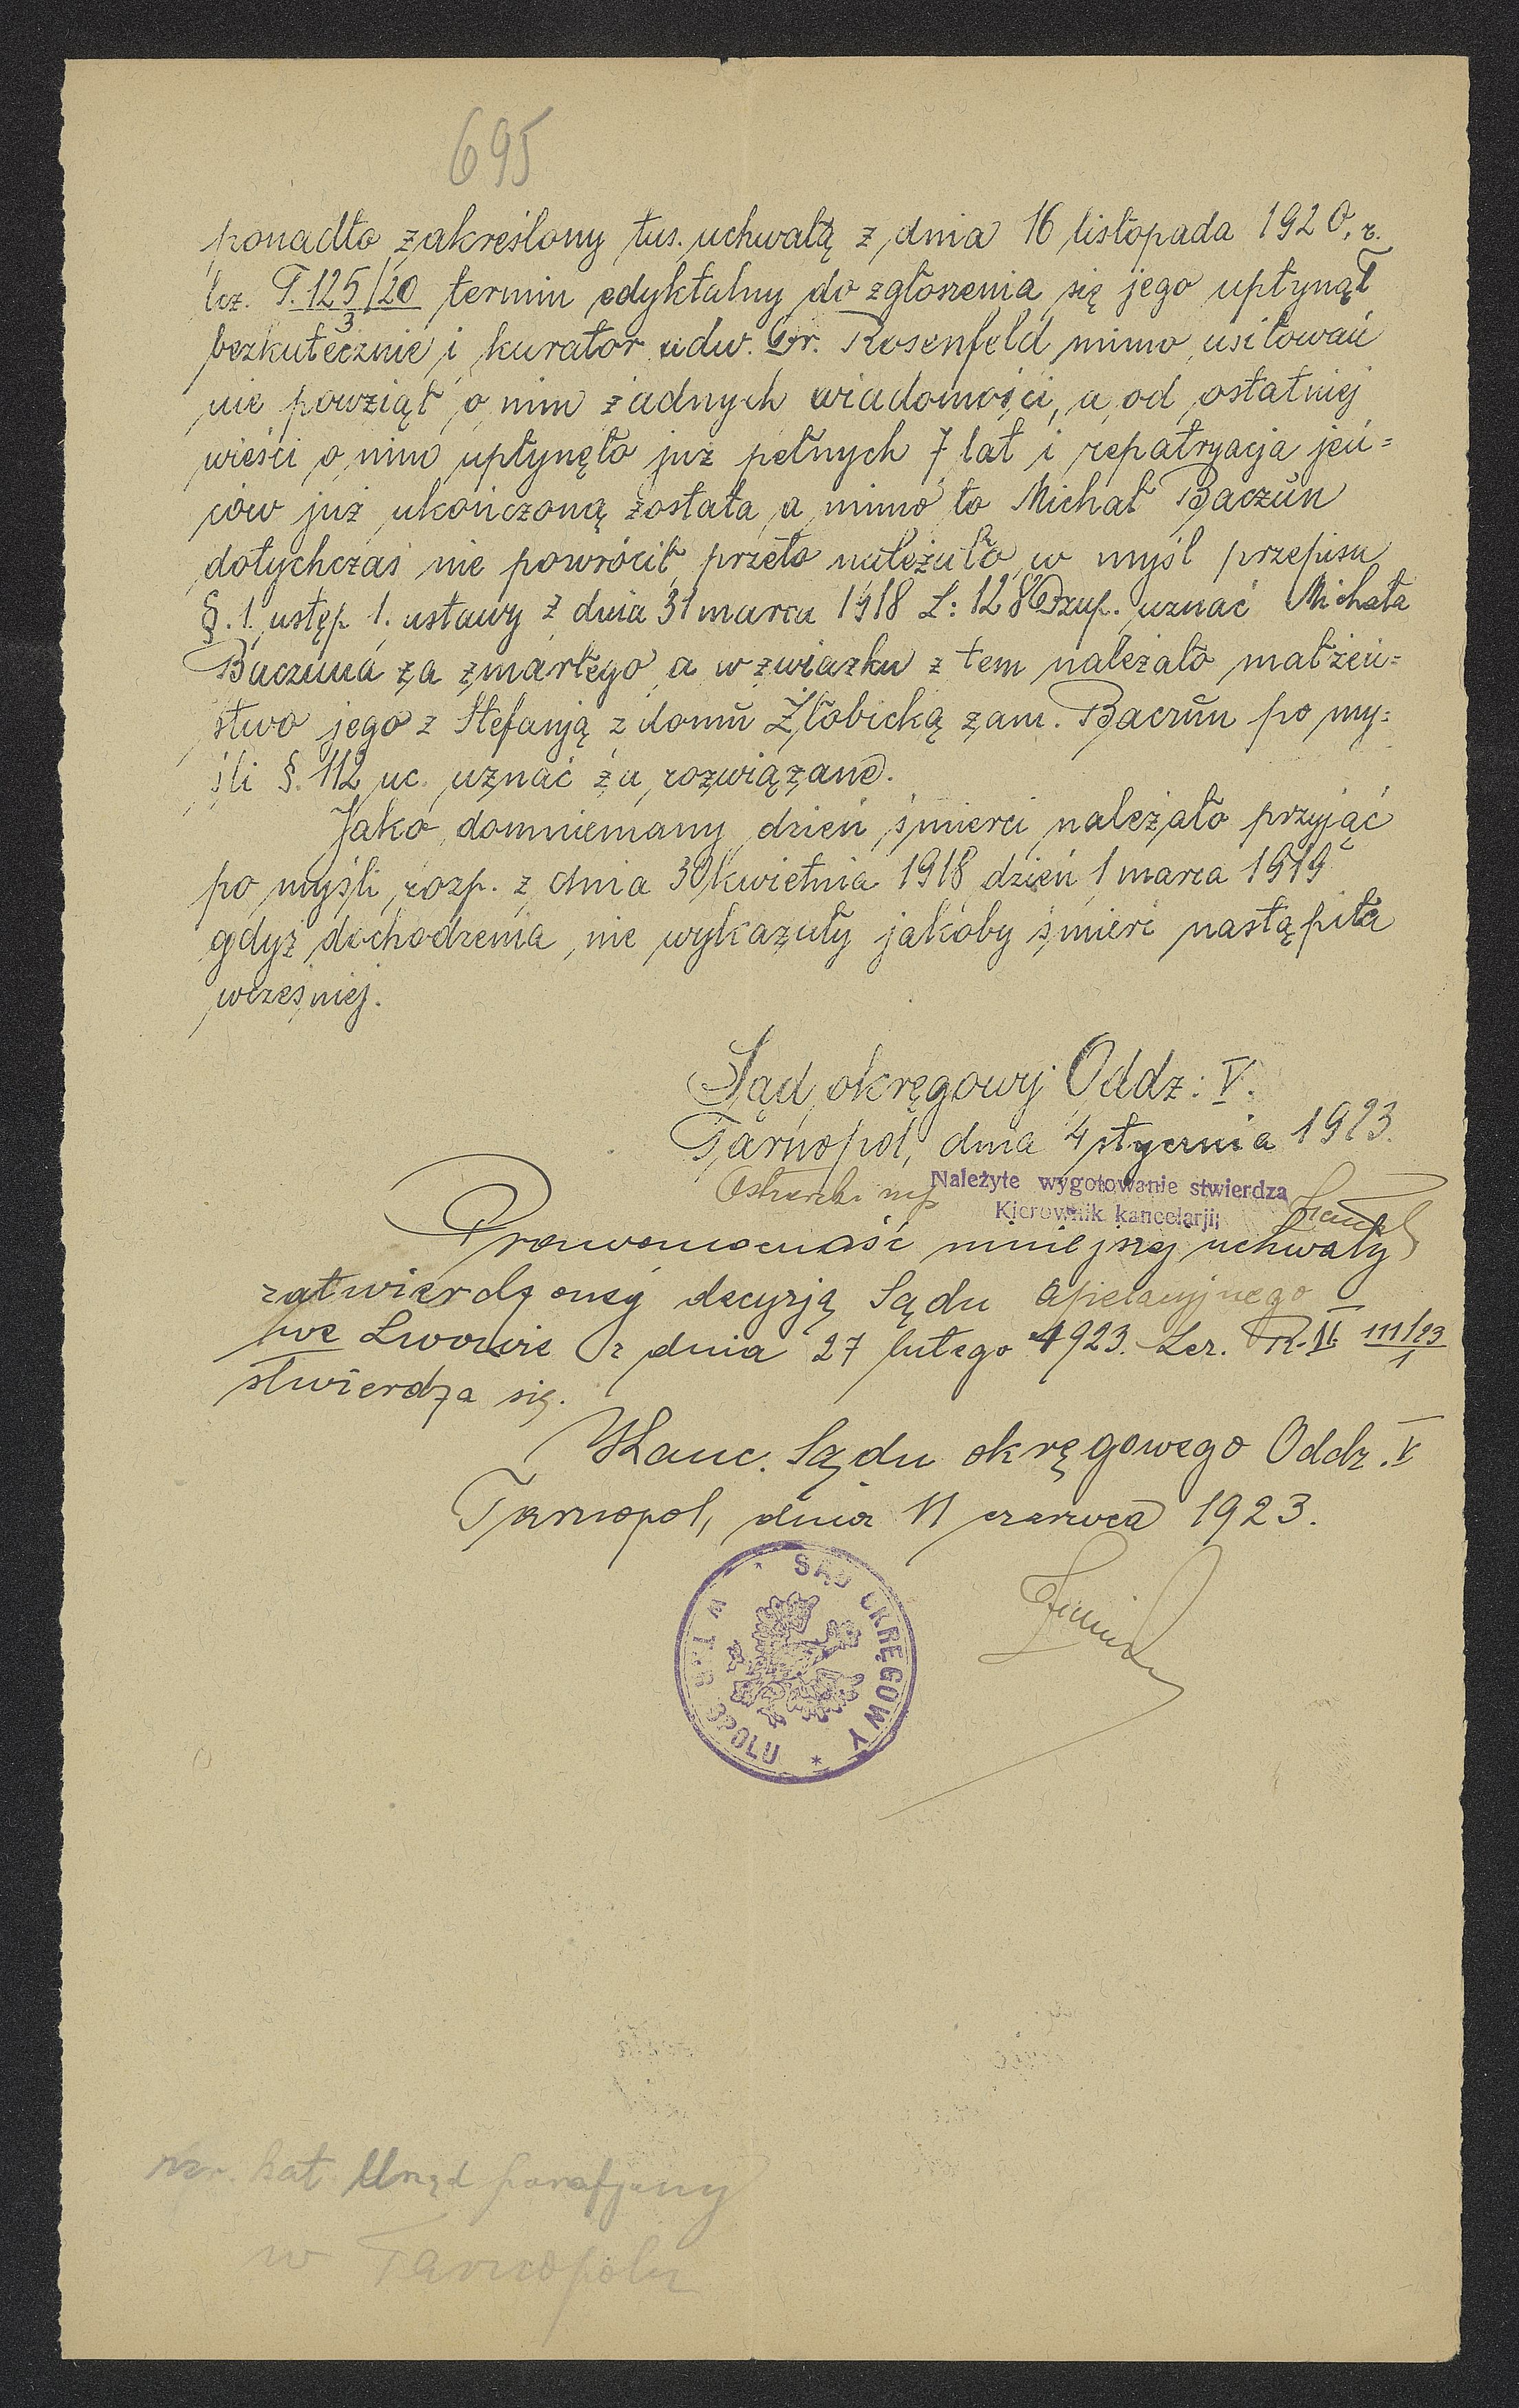 695
ponadto zakreślony tus. uchwałą z dnia 16 listopada 1920. r.
lcz. T. 125/20 termin edyktalny do zgłoszenia się jego upłynął
3
bezkutecznie i kurator adw. Dr. Rosenfeld mimo usiłowań
nie powziął o nim żadnych wiadomości, a od ostatniej
wieści o nim upłynęło już pełnych 7 lat i repatryacja jeń=
ców już ukończoną została a mimo to Michał Baczun
dotychczas nie powrócił przeto należało w myśl przepisu
§. 1. ustęp 1. ustawy z dnia 31 marca 1918 L: 128 Dzup. uznać Michała
Baczuna za zmarłego a w związku z tem należało małżeń=
stwo jego z Stefanją z domu Żłobicką zam. Baczun po my=
śli §. 112 uc. uznać za rozwiązane.
Jako domniemany dzień śmierci należało przyjąć
po myśli rozp. z dnia 30 kwietnia 1918 dzień 1 marca 1919
gdyż dochodzenia nie wykazały jakoby śmierć nastąpiła
wcześniej.
Sąd okręgowy Oddz: V.
Tarnopol, dnia 4 stycznia 1923.
Należyte wygotowanie stwierdza
Kierownik kancelarji:
Prawomocność niniejszej uchwały
zatwierdzonej decyzją Sądu apelacyjnego
we Lwowie z dnia 27 lutego 1923. Lcz. R. II. 111/23
1
stwierdza się.
Kanc. Sądu okręgowego Oddz. V
Tarnopol, dnia 11 czerwca 1923.
* SĄD OKRĘGOWY * W TARNOPOLU
rzr. kat. Urząd parafjalny
w Tarnopolu